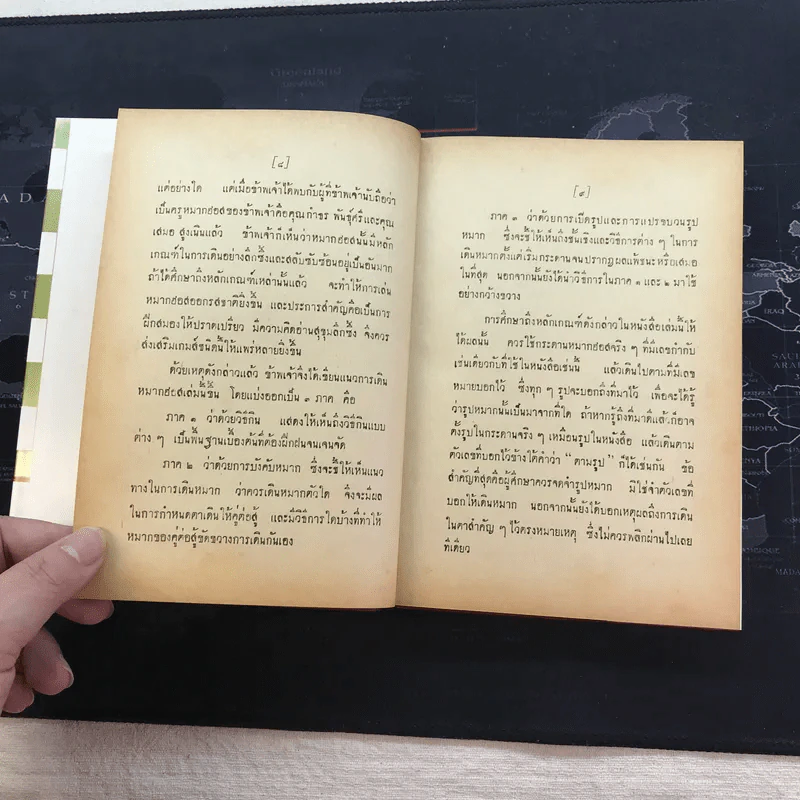 [๘]
แต่อย่างใด แต่เมื่อข้าพเจ้าได้พบกับผู้ที่ข้าพเจ้านับถือว่า
เป็นครูหมากฮอสของข้าพเจ้าคือคุณกำธร พันธุ์ศรีและคุณ
เสมอ สูงเนินแล้ว ข้าพเจ้าก็เห็นว่าหมากฮอสนั้นมีหลัก
เกณฑ์ในการเดินอย่างลึกซึ้งและสลับซับซ้อนอยู่เป็นอันมาก
ถ้าได้ศึกษาถึงหลักเกณฑ์เหล่านั้นแล้ว จะทำให้การเล่น
หมากฮอสออกรสชาติยิ่งขึ้น และประการสำคัญคือเป็นการ
ฝึกสมองให้ปราดเปรียว มีความคิดอ่านสุขุมลึกซึ้ง จึงควร
ส่งเสริมเกมส์ชนิดนี้ให้แพร่หลายยิ่งขึ้น
ด้วยเหตุดังกล่าวแล้ว ข้าพเจ้าจึงได้เขียนแนวการเดิน
หมากฮอสเล่มนี้ขึ้น โดยแบ่งออกเป็น ๓ ภาค คือ
ภาค ๑ ว่าด้วยวิธีกิน แสดงให้เห็นถึงวิธีกินแบบ
ต่าง ๆ เป็นพื้นฐานเบื้องต้นที่ต้องฝึกฝนจนเจนจัด
ภาค ๒ ว่าด้วยการบังคับหมาก ซึ่งจะชี้ให้เห็นแนว
ทางในการเดินหมาก ว่าควรเดินหมากตัวใด จึงจะมีผล
ในการกำหนดตาเดินให้คู่ต่อสู้ และมีวิธีการใดบ้างที่ทำให้
หมากของคู่ต่อสู้ขัดขวางการเดินกันเอง
[๙]
ภาค ๓ ว่าด้วยการเปิดรูปและการแปรขบวนรูป
หมาก ซึ่งจะชี้ให้เห็นถึงชั้นเชิงและวิธีการต่าง ๆ ในการ
เดินหมากตั้งแต่เริ่มกระดานจนปรากฏผลแพ้ชนะหรือเสมอ
ในที่สุด นอกจากนั้นยังได้นำวิธีการในภาค ๑ และ ๒ มาใช้
อย่างกว้างขวาง
การศึกษาถึงหลักเกณฑ์ดังกล่าวในหนังสือเล่มนี้ให้
ได้ผลนั้น ควรใช้กระดานหมากฮอสจริง ๆ ที่มีเลขกำกับ
เช่นเดียวกับที่ใช้ในหนังสือเช่นนี้ แล้วเดินไปตามที่มีเลข
หมายบอกไว้ ซึ่งทุก ๆ รูปจะบอกถึงที่มาไว้ เพื่อจะได้รู้
ว่ารูปหมากนั้นเป็นมาจากที่ใด ถ้าหากรู้ถึงที่มาดีแล้วก็อาจ
ตั้งรูปในกระดานจริง ๆ เหมือนรูปในหนังสือ แล้วเดินตาม
ตัวเลขที่บอกไว้ข้างใต้คำว่า “ตามรูป” ก็ได้เช่นกัน ข้อ
สำคัญที่สุดคือผู้ศึกษาควรจดจำรูปหมาก มิใช่จำตัวเลขที่
บอกให้เดินหมาก นอกจากนั้นยังได้บอกเหตุผลถึงการเดิน
ในตาสำคัญ ๆ ไว้ตรงหมายเหตุ ซึ่งไม่ควรพลิกผ่านไปเลย
ทีเดียว